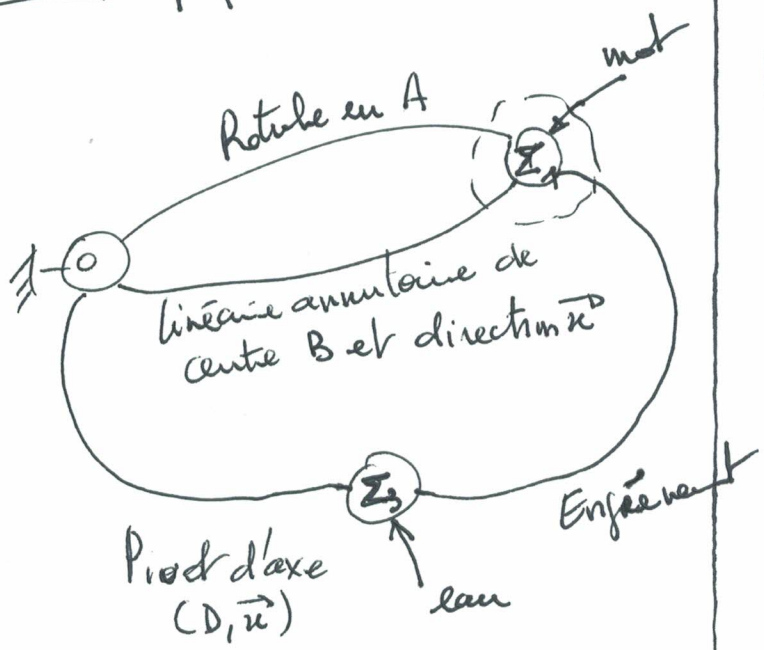 mot
Rotule en A
Σ1
0
linéaire annulaire de
centre B et direction x⃗
Σ3
Engrènement
Pivot d'axe
(D, x⃗)
eau